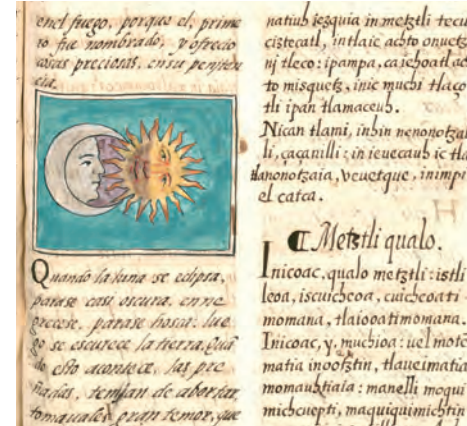 enel fuego, porque el, prime
ro fue nombrado, y ofrecio
cosas preciosas, ensu peniten
cia.
Quando la luna se eclipsa,
parase casi oscura, enne
grecese, parase hosca: lue
go se escurece la tierra. Quã
do esto acontece, las pre
ñadas, temjan de abortar,
tomauales gran temor, que
natiuh iezquia in metztli tecu
ciztecatl, intlaic achto onuetz
nj tleco: ipampa, ca iehoatl ac
to misquetz, inic muchi tlaço
tli ipan tlamaceuh.
Nican tlami, inhin nenonotzal
li, caçanilli: in ieuecauh ic tla
tlanonotzaia, veuetque, inimpi
el catca.
¶ Metztli qualo.
Inicoac, qualo metztli: istli
leoa, iscuichcoa, cuichcoati
momana, tlaiooatimomana.
Inicoac, y, muchioa: uel motẽ
matia inootztin, tlaueimatia
momauhtiaia: manelli moqui
michcuepti, maquiquimichtin